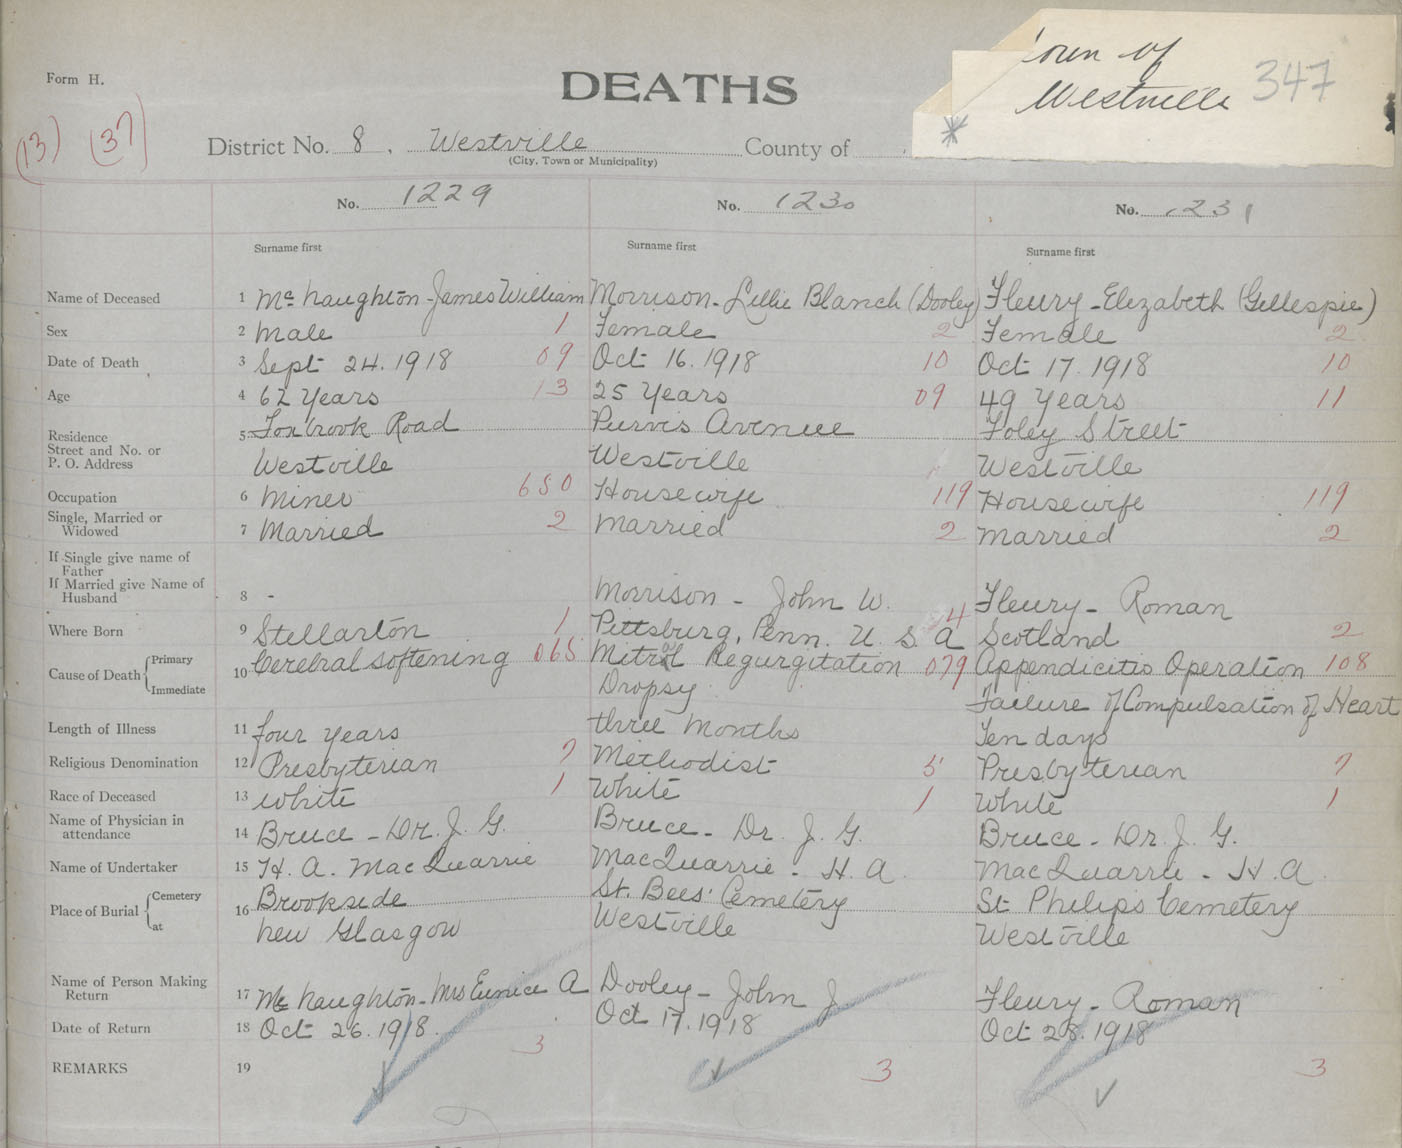 Town of
Westville 347
Form H.
DEATHS
(13) (37)
District No. 8, Westville County of
(City, Town or Municipality)
No. 1229 No. 1230 No. 1231
Surname first Surname first Surname first
Name of Deceased 1 Mc Naughton - James William Morrison - Lillie Blanch (Dooley) Fleury - Elizabeth (Gillespie)
Sex 2 Male 1 Female 2 Female 2
Date of Death 3 Sept 24. 1918 09 Oct 16. 1918 10 Oct 17. 1918 10
Age 4 62 Years 13 25 Years 09 49 Years 11
Residence
Street and No. or
P. O. Address
5 Foxbrook Road Purvis Avenue Foley Street
Westville Westville Westville
Occupation 6 Miner 650 Housewife 119 Housewife 119
Single, Married or
Widowed 7 Married 2 Married 2 Married 2
If Single give name of
Father
If Married give Name of
Husband 8 - Morrison - John W. Fleury - Roman
Where Born 9 Stellarton 1 Pittsburg, Penn. U S A 4 Scotland 2
Cause of Death { Primary 10 Cerebral Softening 065 Mitral Regurgitation 079 Appendicitis Operation 108
Immediate Dropsy Failure of Compulsation of Heart
Length of Illness 11 four years three months Ten days
Religious Denomination 12 Presbyterian 7 Methodist 5 Presbyterian 7
Race of Deceased 13 White 1 White 1 White 1
Name of Physician in
attendance 14 Bruce - Dr. J. G. Bruce - Dr. J. G. Bruce - Dr. J. G.
Name of Undertaker 15 H. A. MacQuarrie MacQuarrie - H. A. MacQuarrie - H. A
Place of Burial { Cemetery 16 Brookside St. Bees' Cemetery St Philips Cemetery
at New Glasgow Westville Westville
Name of Person Making
Return 17 Mc Naughton - Mrs Eunice A Dooley - John J Fleury - Roman
Date of Return 18 Oct 26. 1918. Oct 17. 1918 Oct 28. 1918
REMARKS 19 3 3 3